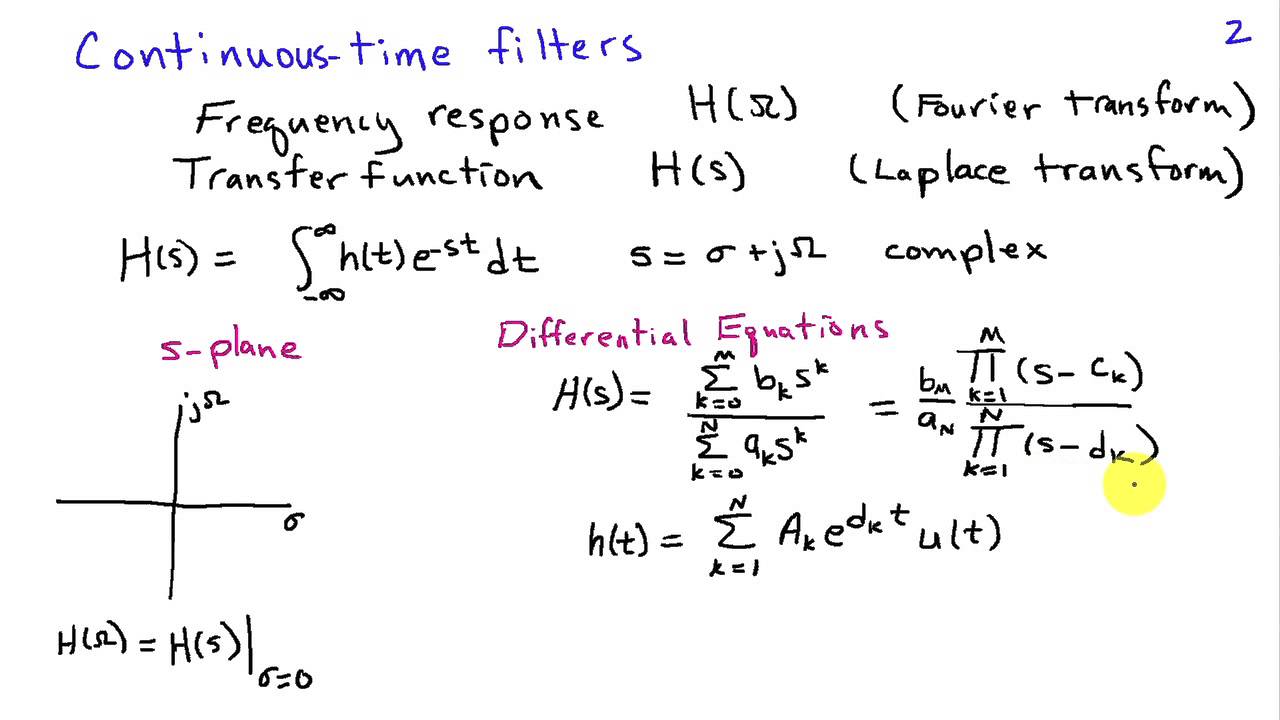 Continuous-time filters 2
Frequency response H(Ω) (Fourier transform)
Transfer function H(s) (Laplace transform)
H(s) = ∫_{-∞}^{∞} h(t) e^{-st} dt s = σ + jΩ complex
s-plane
jΩ
σ
H(Ω) = H(s)|_{σ=0}
Differential Equations
H(s) = \frac{∑_{k=0}^{M} b_k s^k}{∑_{k=0}^{N} a_k s^k} = \frac{b_M}{a_N} \frac{∏_{k=1}^{M} (s - c_k)}{∏_{k=1}^{N} (s - d_k)}
h(t) = ∑_{k=1}^{N} A_k e^{d_k t} u(t)